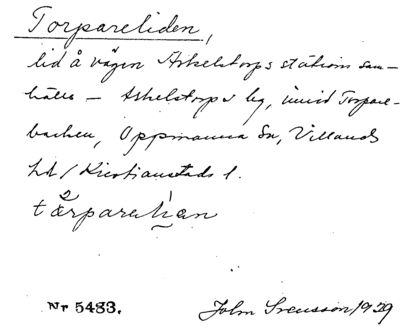 Torpareliden,
lid å vägen Arkelstorps stations sam-
hälle – Arkelstorps by, invid Torpare-
backen, Oppmanna Sn, Villands
hd / Kristianstads l.
Nr 5483. John Svensson 1929